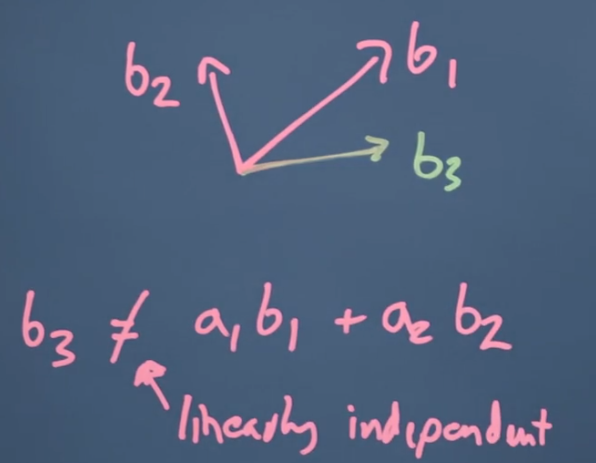 b₂ b₁
b₃
b₃ ≠ a₁b₁ + a₂b₂
linearly independent